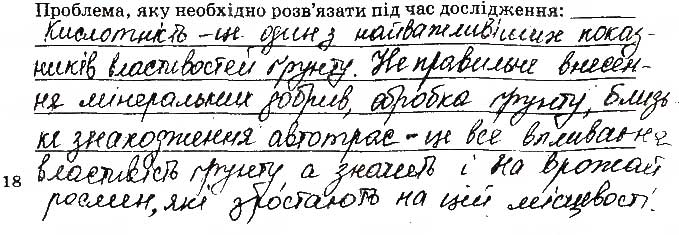 Проблема, яку необхідно розв'язати під час дослідження:
Кислотність - це один з найважливіших показ-
ників властивостей ґрунту. Неправильне внесен-
ня мінеральних добрив, обробка ґрунту, близь-
ке знаходження автотрас - це все впливає на
властивість ґрунту а значить і на врожай
18
рослин, які зростають на цій місцевості.